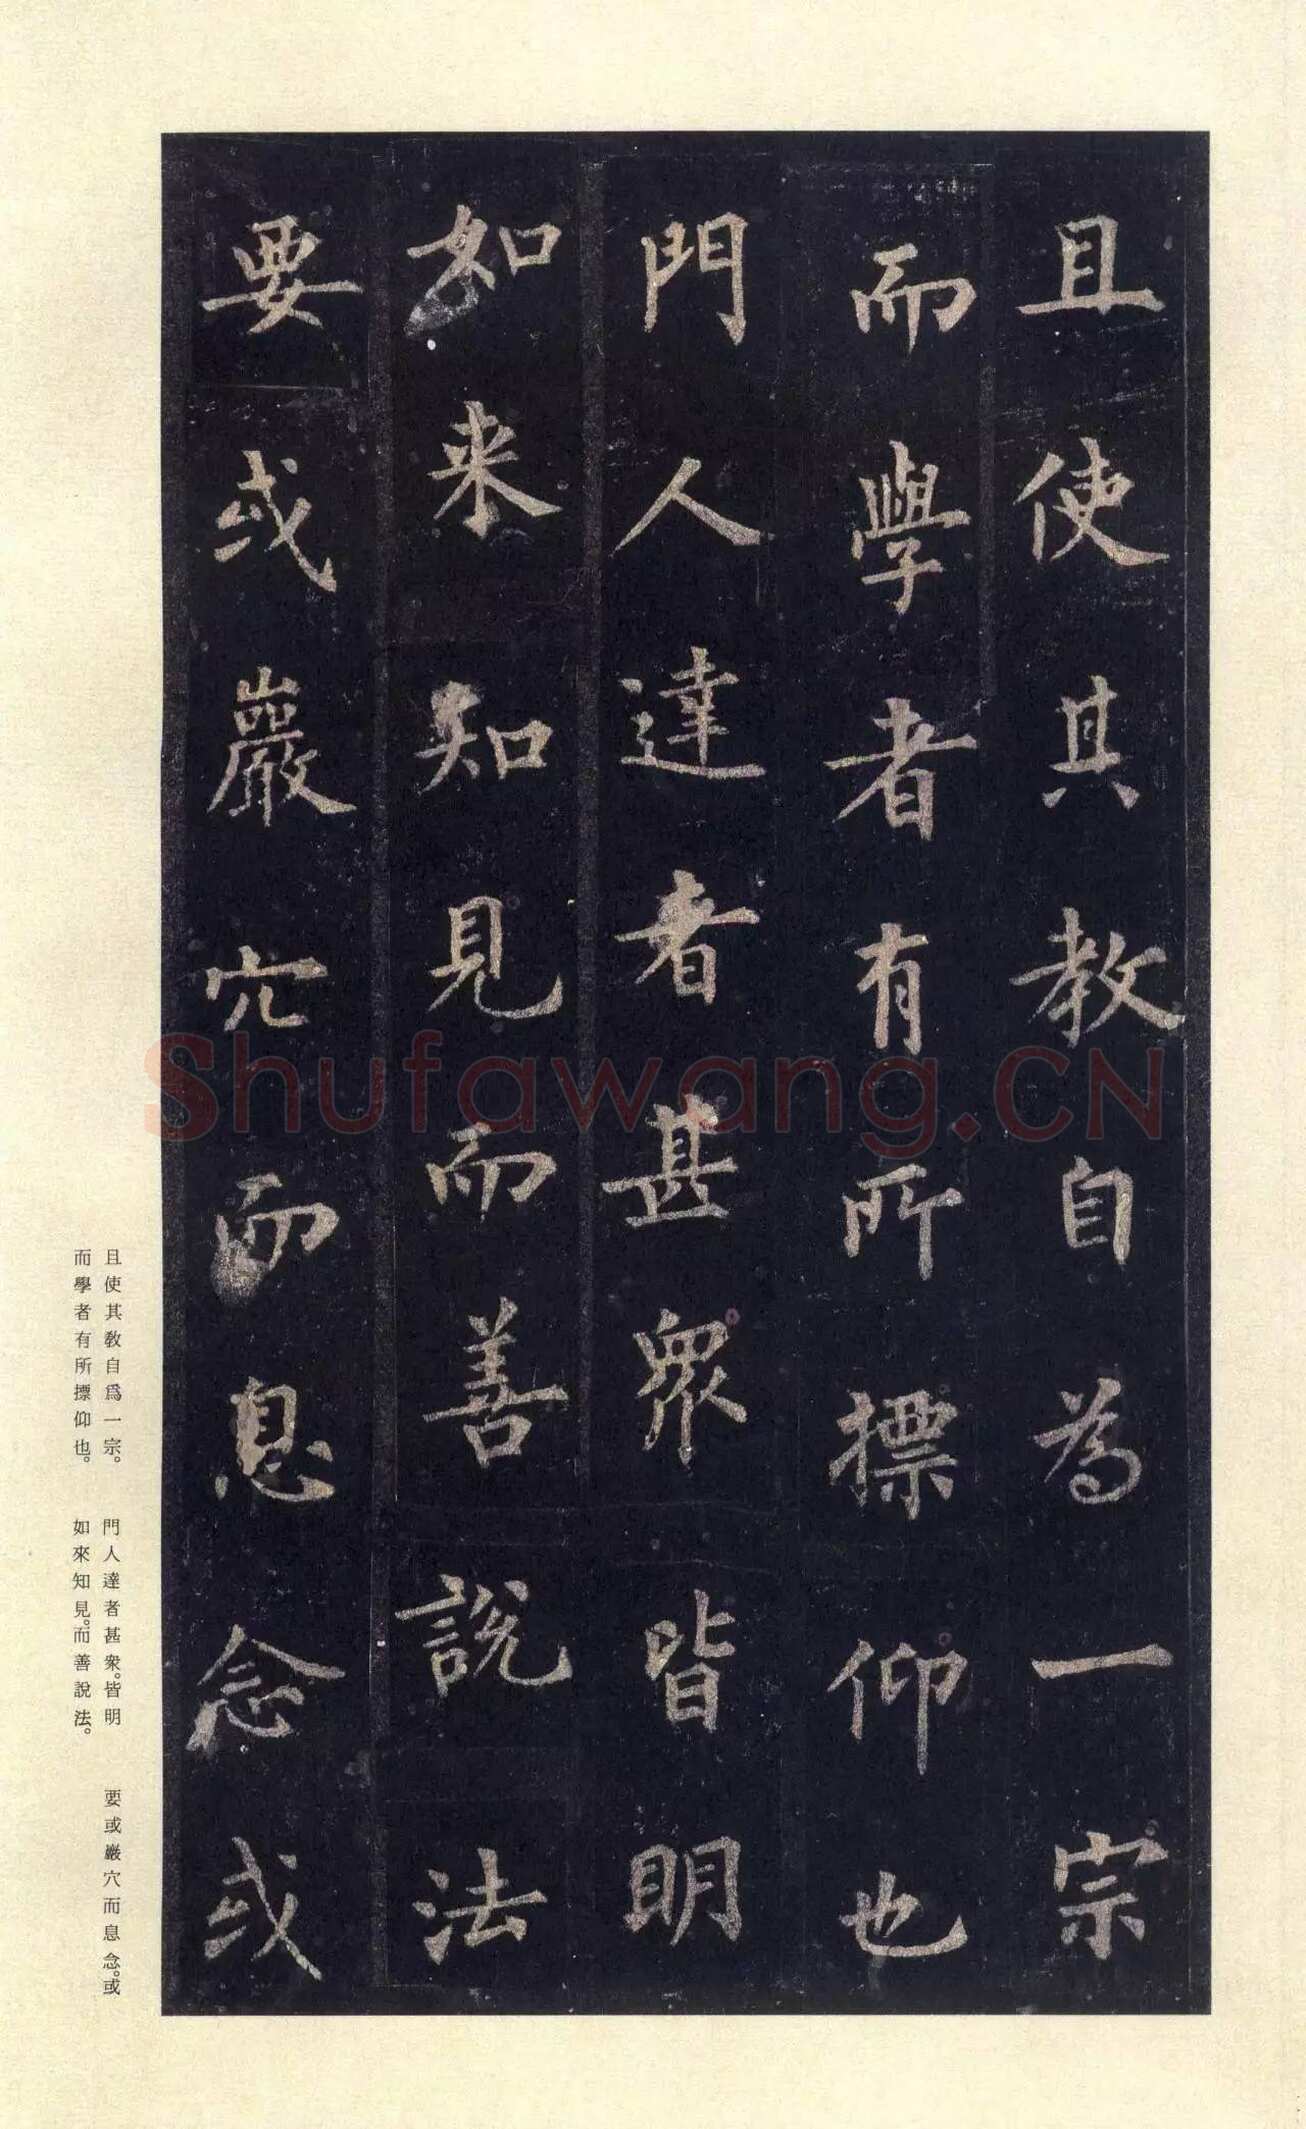 且使其教自為一宗
而學者有所摽仰也
門人達者甚眾皆明
如来知見而善說法
要或巖穴而息念或
Shufawang.CN
且使其教自爲一宗。
而學者有所摽仰也。
門人達者甚衆。皆明
如來知見。而善說法。
要或巖穴而息念。或